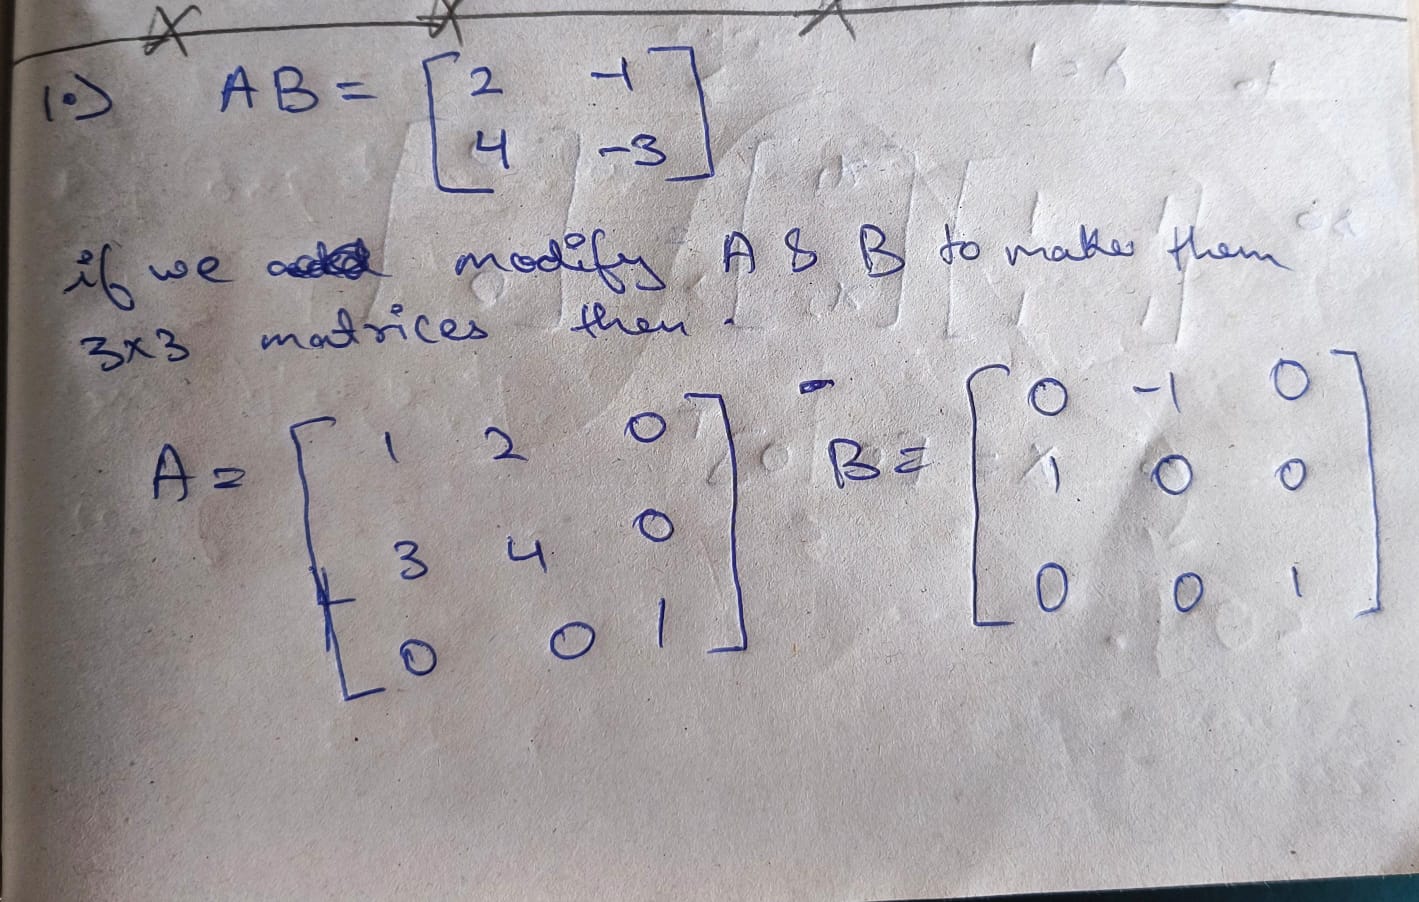 10) AB = [2 -1
4 -3]
if we modify A & B to make them
3x3 matrices then.
A = [1 2 0
3 4 0
0 0 1]
B = [0 -1 0
1 0 0
0 0 1]